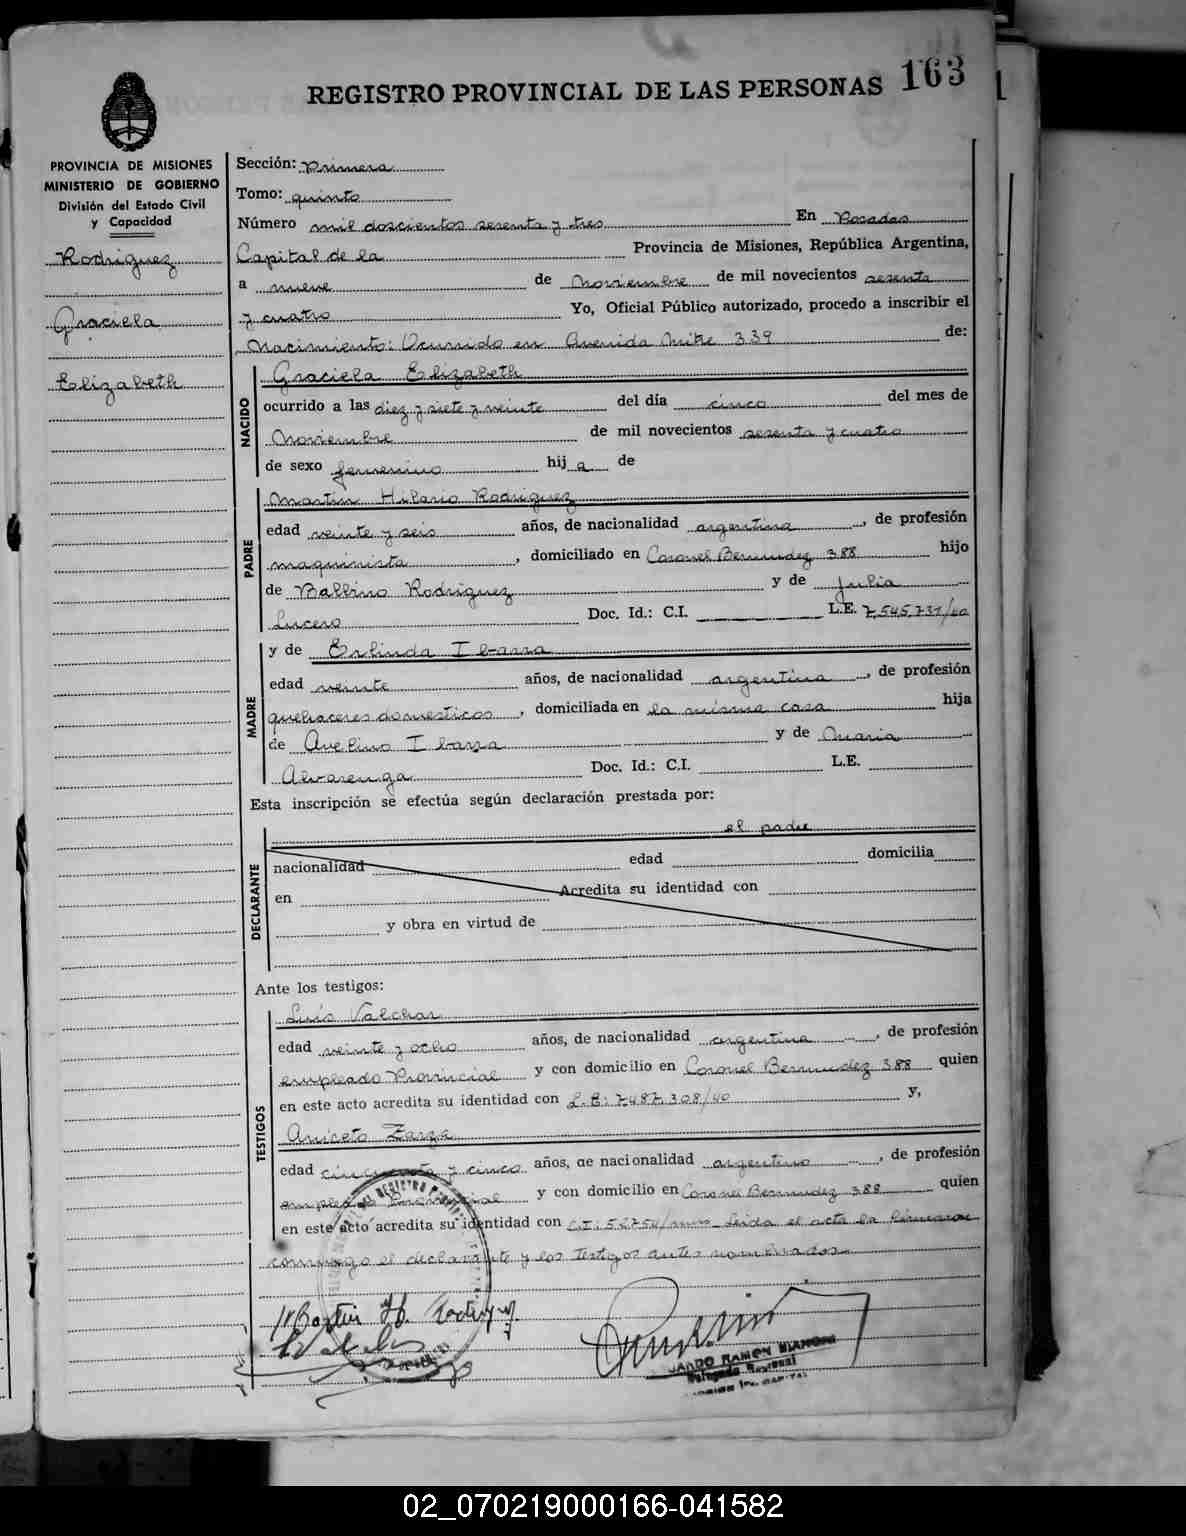 163
REGISTRO PROVINCIAL DE LAS PERSONAS
PROVINCIA DE MISIONES
MINISTERIO DE GOBIERNO
División del Estado Civil
y Capacidad
Rodriguez
Graciela
Elizabeth
Sección: Primera
Tomo: quinto
Número mil doscientos sesenta y tres En Posadas
Capital de la Provincia de Misiones, República Argentina,
a nueve de Noviembre de mil novecientos sesenta
y cuatro Yo, Oficial Público autorizado, procedo a inscribir el
Nacimiento: Ocurrido en Avenida Mitre 339 de:
NACIDO
Graciela Elizabeth
ocurrido a las diez y siete y veinte del día cinco del mes de
Noviembre de mil novecientos sesenta y cuatro
de sexo femenino hija de
PADRE
Martin Hilario Rodriguez
edad veinte y seis años, de nacionalidad argentina, de profesión
maquinista, domiciliado en Coronel Bermudez 388 hijo
de Balbino Rodriguez y de Julia
Lucero Doc. Id.: C.I. L.E. 7.545.731/40
MADRE
y de Erlinda Ibarra
edad veinte años, de nacionalidad argentina, de profesión
quehaceres domesticos, domiciliada en la misma casa hija
de Avelino Ibarra y de Maria
Alvarenga Doc. Id.: C.I. L.E.
Esta inscripción se efectúa según declaración prestada por:
el padre
DECLARANTE
nacionalidad edad domicilia
en Acredita su identidad con
y obra en virtud de
Ante los testigos:
TESTIGOS
Luis Valchar
edad veinte y ocho años, de nacionalidad argentina, de profesión
empleado Provincial y con domicilio en Coronel Bermudez 388 quien
en este acto acredita su identidad con L.E: 7.487.308/40 y,
Aniceto Zarza
edad cincuenta y cinco años, de nacionalidad argentino, de profesión
empleado Provincial y con domicilio en Coronel Bermudez 388 quien
en este acto acredita su identidad con C.I: 52750/mnes Leida el acta la firmaron
conmigo el declarante y los testigos antes nombrados.
Martin H. Rodriguez
RAMON BIANCHI
Delegado Regional
02_070219000166-041582